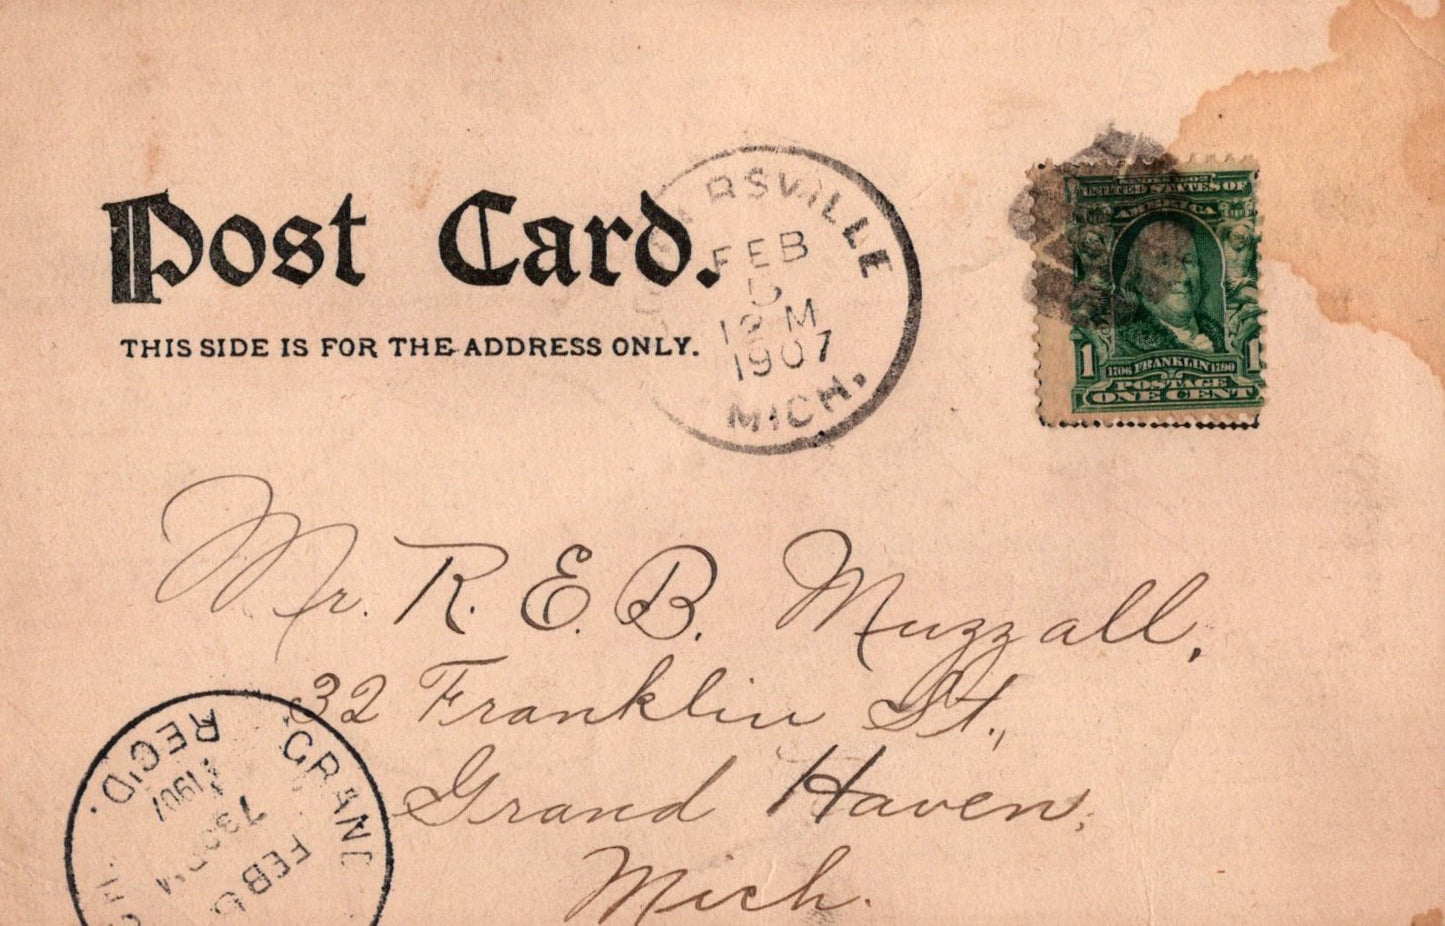 Post Card.
THIS SIDE IS FOR THE ADDRESS ONLY.
FEB
5
12 M
1907
MICH.
SERIES 1902
UNITED STATES OF
AMERICA
1 1706 FRANKLIN 1790 1
POSTAGE
ONE CENT
Mr. R. E. B. Muzzall,
32 Franklin St.,
Grand Haven,
Mich.
GRAND
FEB 5
730PM
1907
REC'D.